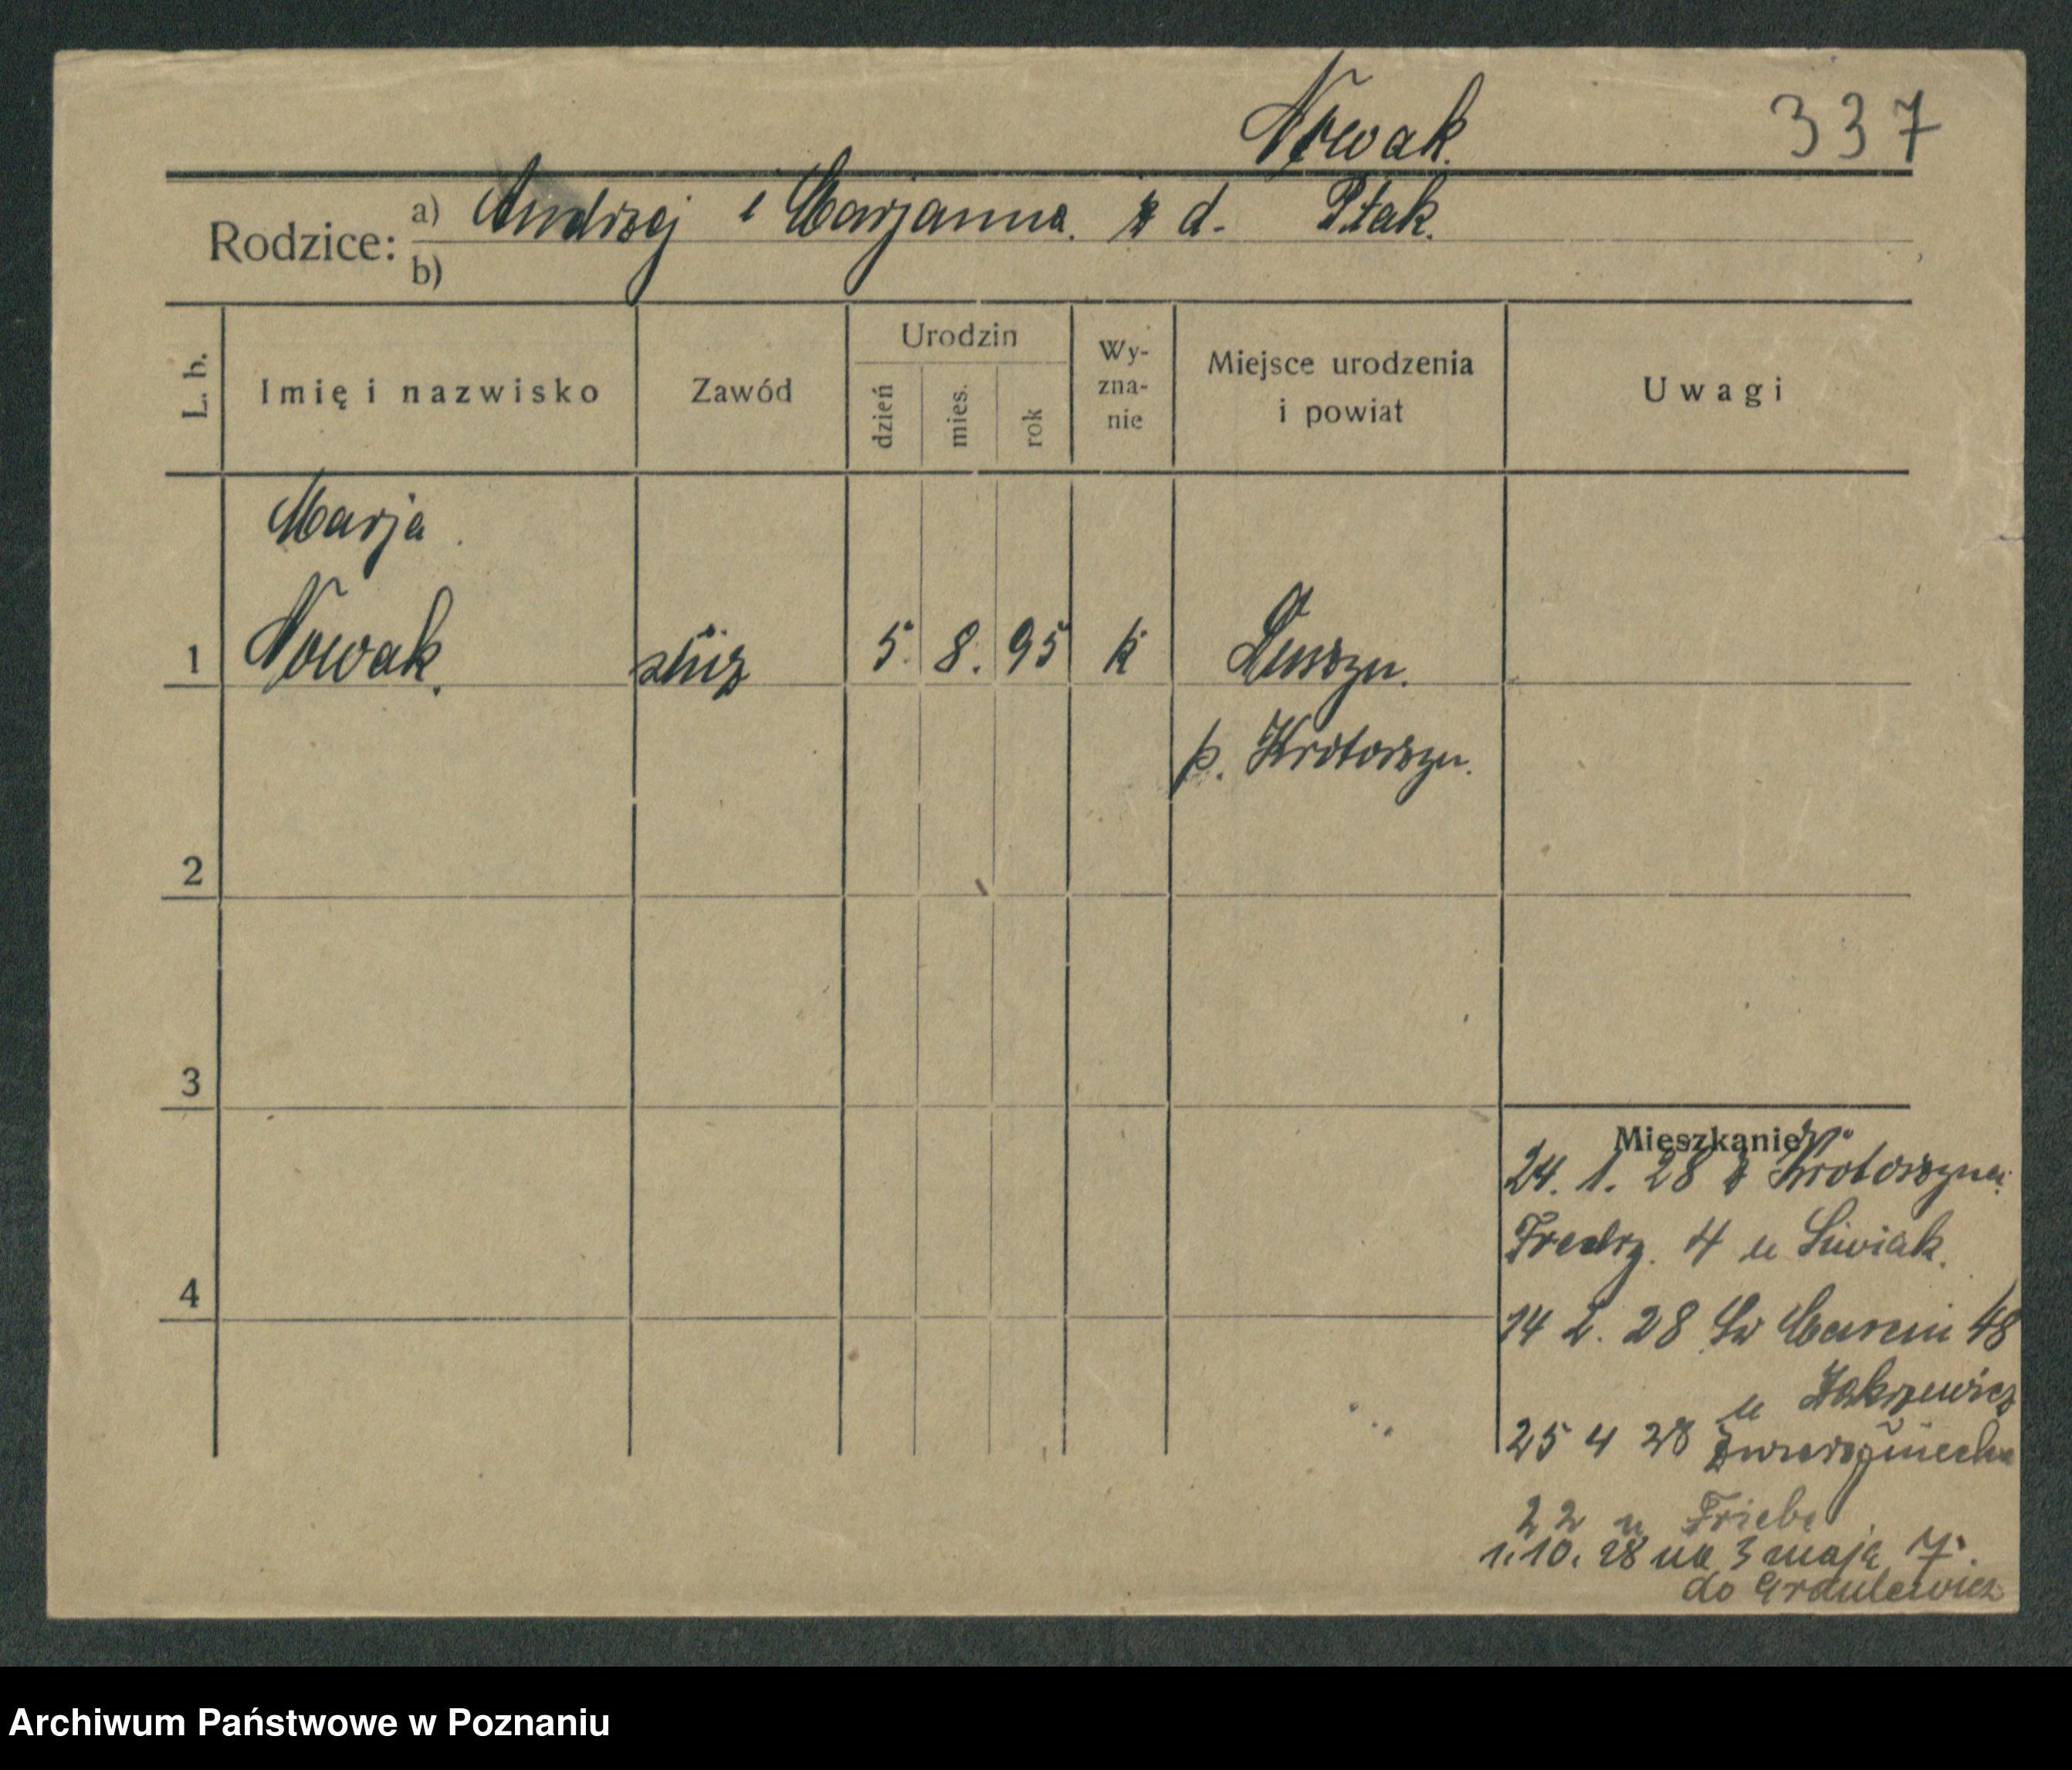 Nowak. 337
Rodzice: a) Andrzej i Marjanna. z d. Ptak.
b)
L. b. Imię i nazwisko Zawód Urodzin dzień mies. rok Wy-zna-nie Miejsce urodzenia i powiat Uwagi
Marja
1 Nowak. służ 5. 8. 95 k
p. Krotoszyn.
2
3
4
Mieszkanie
24. 1. 28 z Krotoszyna
Fredry. 4 u Siwiak.
14 2. 28 Św Marcin 48
u
25 4 28
22 u Friebe
1. 10. 28 na 3 maja 7.
do Graulewicz
Archiwum Państwowe w Poznaniu